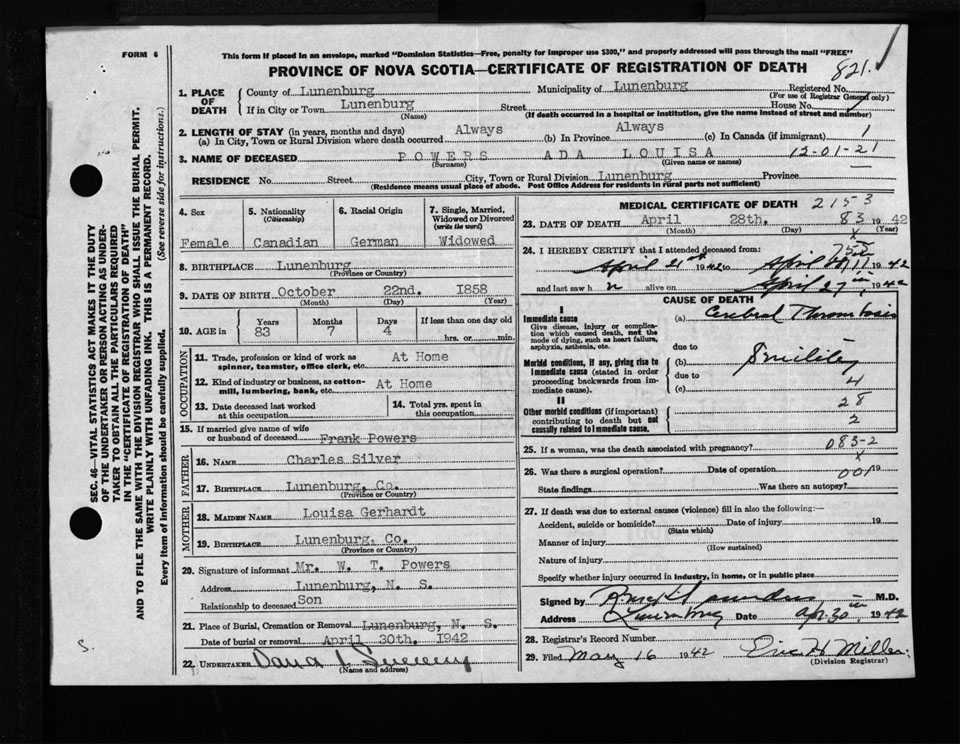 FORM 6
This form if placed in an envelope, marked "Dominion Statistics—Free, penalty for improper use $300," and properly addressed will pass through the mail "FREE"
PROVINCE OF NOVA SCOTIA—CERTIFICATE OF REGISTRATION OF DEATH
821.
SEC. 46—VITAL STATISTICS ACT MAKES IT THE DUTY
OF THE UNDERTAKER OR PERSON ACTING AS UNDER-
TAKER TO OBTAIN ALL THE PARTICULARS REQUIRED
IN THE "CERTIFICATE OF REGISTRATION OF DEATH"
AND TO FILE THE SAME WITH THE DIVISION REGISTRAR WHO SHALL ISSUE THE BURIAL PERMIT.
WRITE PLAINLY WITH UNFADING INK. THIS IS A PERMANENT RECORD.
Every item of information should be carefully supplied. (See reverse side for instructions.)
1. PLACE OF DEATH
County of Lunenburg Municipality of Lunenburg Registered No.
(For use of Registrar General only)
If in City or Town Lunenburg Street House No.
(Name) (If death occurred in a hospital or institution, give the name instead of street and number)
2. LENGTH OF STAY (in years, months and days)
(a) In City, Town or Rural Division where death occurred Always (b) In Province Always (c) In Canada (if immigrant) 1
3. NAME OF DECEASED POWERS ADA LOUISA 12-01-21
(Surname) (Given name or names)
RESIDENCE No. Street City, Town or Rural Division Lunenburg Province
(Residence means usual place of abode. Post Office Address for residents in rural parts not sufficient)
4. Sex Female
5. Nationality (Citizenship) Canadian
6. Racial Origin German
7. Single, Married, Widowed or Divorced (write the word) Widowed
8. BIRTHPLACE Lunenburg
(Province or Country)
9. DATE OF BIRTH October 22nd. 1858
(Month) (Day) (Year)
10. AGE in Years 83 Months 7 Days 4 If less than one day old hrs. or min.
OCCUPATION
11. Trade, profession or kind of work as spinner, teamster, office clerk, etc. At Home
12. Kind of industry or business, as cotton-mill, lumbering, bank, etc. At Home
13. Date deceased last worked at this occupation
14. Total yrs. spent in this occupation
15. If married give name of wife or husband of deceased Frank Powers
FATHER
16. NAME Charles Silver
17. BIRTHPLACE Lunenburg, Co.
(Province or Country)
MOTHER
18. MAIDEN NAME Louisa Gerhardt
19. BIRTHPLACE Lunenburg, Co.
(Province or Country)
20. Signature of informant Mr. W. T. Powers
Address Lunenburg, N. S.
Relationship to deceased Son
21. Place of Burial, Cremation or Removal Lunenburg, N. S.
Date of burial or removal April 30th. 1942
22. UNDERTAKER
(Name and address)
MEDICAL CERTIFICATE OF DEATH 2153
23. DATE OF DEATH April 28th. 83 1942
(Month) (Day) (Year)
x
24. I HEREBY CERTIFY that I attended deceased from:
April 21st 1942 to April 1942
and last saw h alive on April 27 1942
CAUSE OF DEATH
I
Immediate cause
Give disease, injury or complication which caused death, not the mode of dying, such as heart failure, asphyxia, asthenia, etc.
(a) Cerebral Thrombosis
due to
Morbid conditions, if any, giving rise to immediate cause (stated in order proceeding backwards from immediate cause).
(b) Senility
due to 4
(c)
28
II
Other morbid conditions (if important) contributing to death but not causally related to immediate cause.
2
083-2
25. If a woman, was the death associated with pregnancy?
x
26. Was there a surgical operation? Date of operation 19
001
State findings Was there an autopsy?
27. If death was due to external causes (violence) fill in also the following:—
Accident, suicide or homicide? Date of injury 19
(State which)
Manner of injury
(How sustained)
Nature of injury
Specify whether injury occurred in industry, in home, or in public place
Signed by M.D.
Address Lunenburg Date Apr. 30 1942
28. Registrar's Record Number
29. Filed May 16 1942 Eric H Miller.
(Division Registrar)
S.